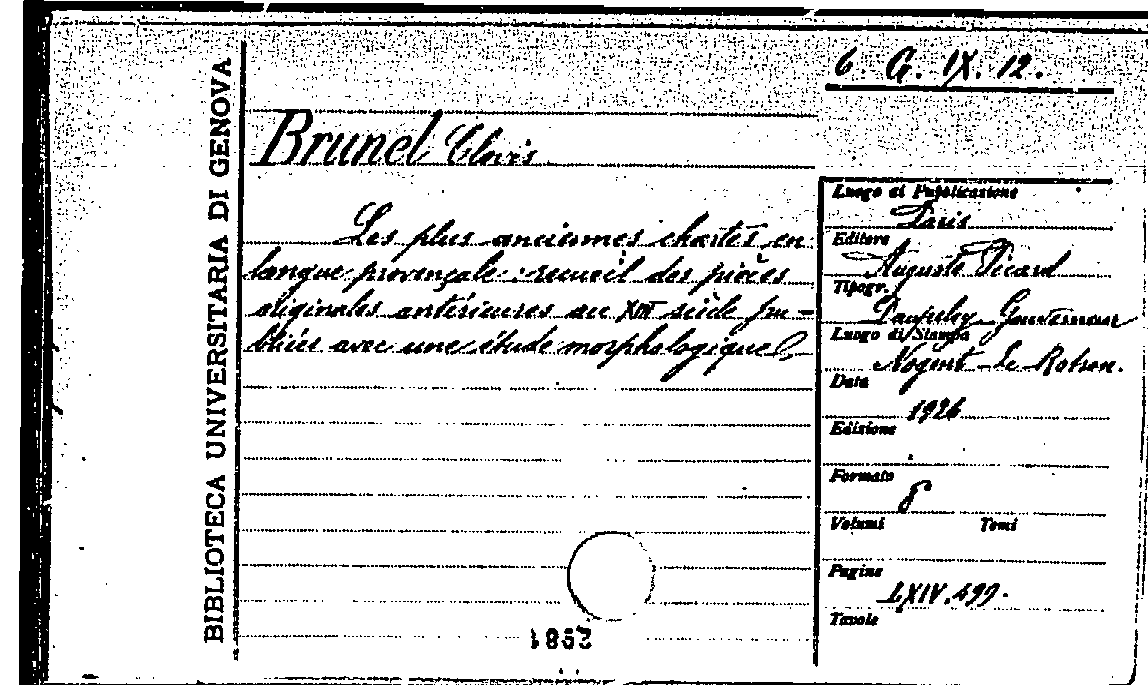 6. G. IX. 12.
BIBLIOTECA UNIVERSITARIA DI GENOVA
Brunel Clovis
Les plus anciennes chartes en
langue provençale. recueil des pièces
originales antérieures au XIIIe siècle pu-
bliées avec une étude morphologique
Luogo di Pubblicazione
Paris
Editore
Auguste Picard
Tipogr.
Daupeley Gouverneur
Luogo di Stampa
Nogent-Le Rotrou.
Data
1926
Edizione
Formato
8°
Volumi Tomi
Pagine
LXIV. 499.
Tavole